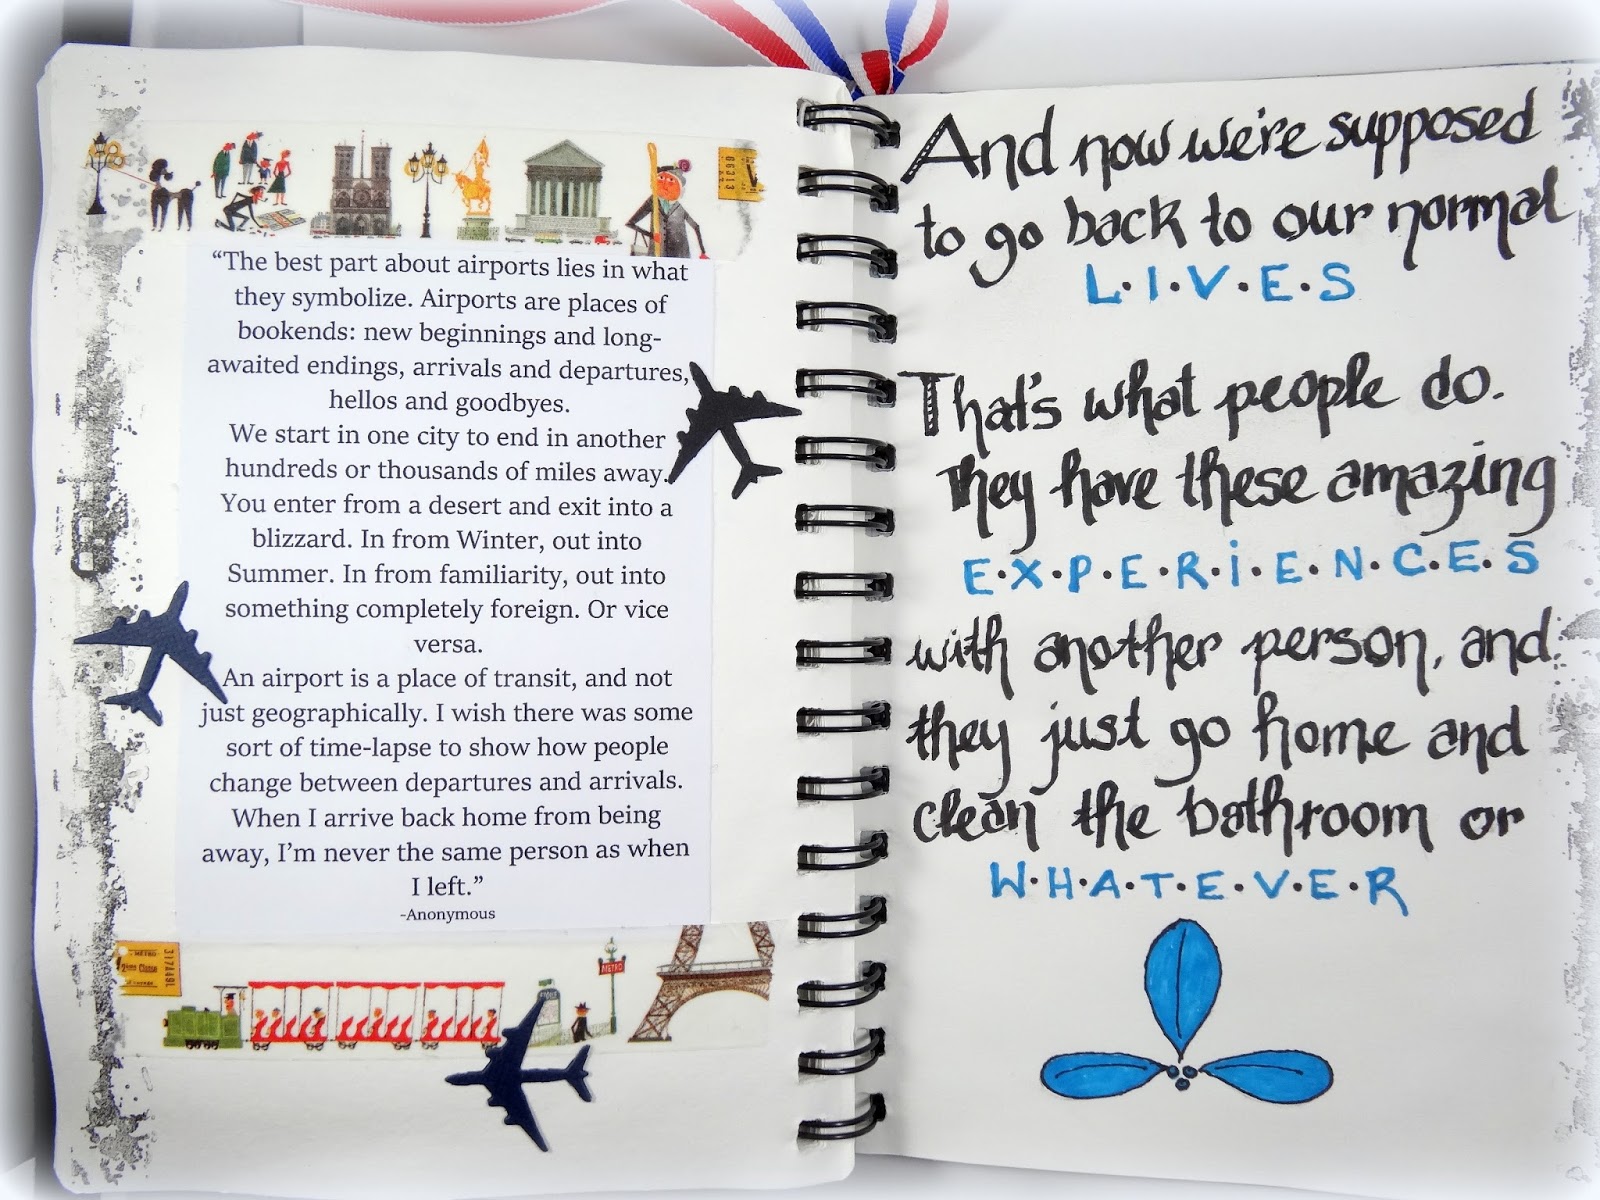 “The best part about airports lies in what
they symbolize. Airports are places of
bookends: new beginnings and long-
awaited endings, arrivals and departures,
hellos and goodbyes.
We start in one city to end in another
hundreds or thousands of miles away.
You enter from a desert and exit into a
blizzard. In from Winter, out into
Summer. In from familiarity, out into
something completely foreign. Or vice
versa.
An airport is a place of transit, and not
just geographically. I wish there was some
sort of time-lapse to show how people
change between departures and arrivals.
When I arrive back home from being
away, I’m never the same person as when
I left.”
-Anonymous
METRO
2ème Classe
317A49L
METRO
And now we're supposed
to go back to our normal
L·I·V·E·S
That's what people do.
They have these amazing
E·X·P·E·R·I·E·N·C·E·S
with another person, and
they just go home and
clean the bathroom or
W·H·A·T·E·V·E·R